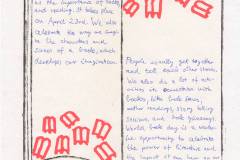 as the importance of books
and reading. It takes place
on April 23rd. We also
celebrate the way we imagine
the characters and
scenes of a book, which
develops our imagination.
People usually get together
and tell each other stories.
We also do a lot of activities
in connection with
books, like book fairs,
author readings, story telling
sessions and book giveaways.
World book day is a wonderful
opportunity to celebrate the
power of literature and
the impact it can have on